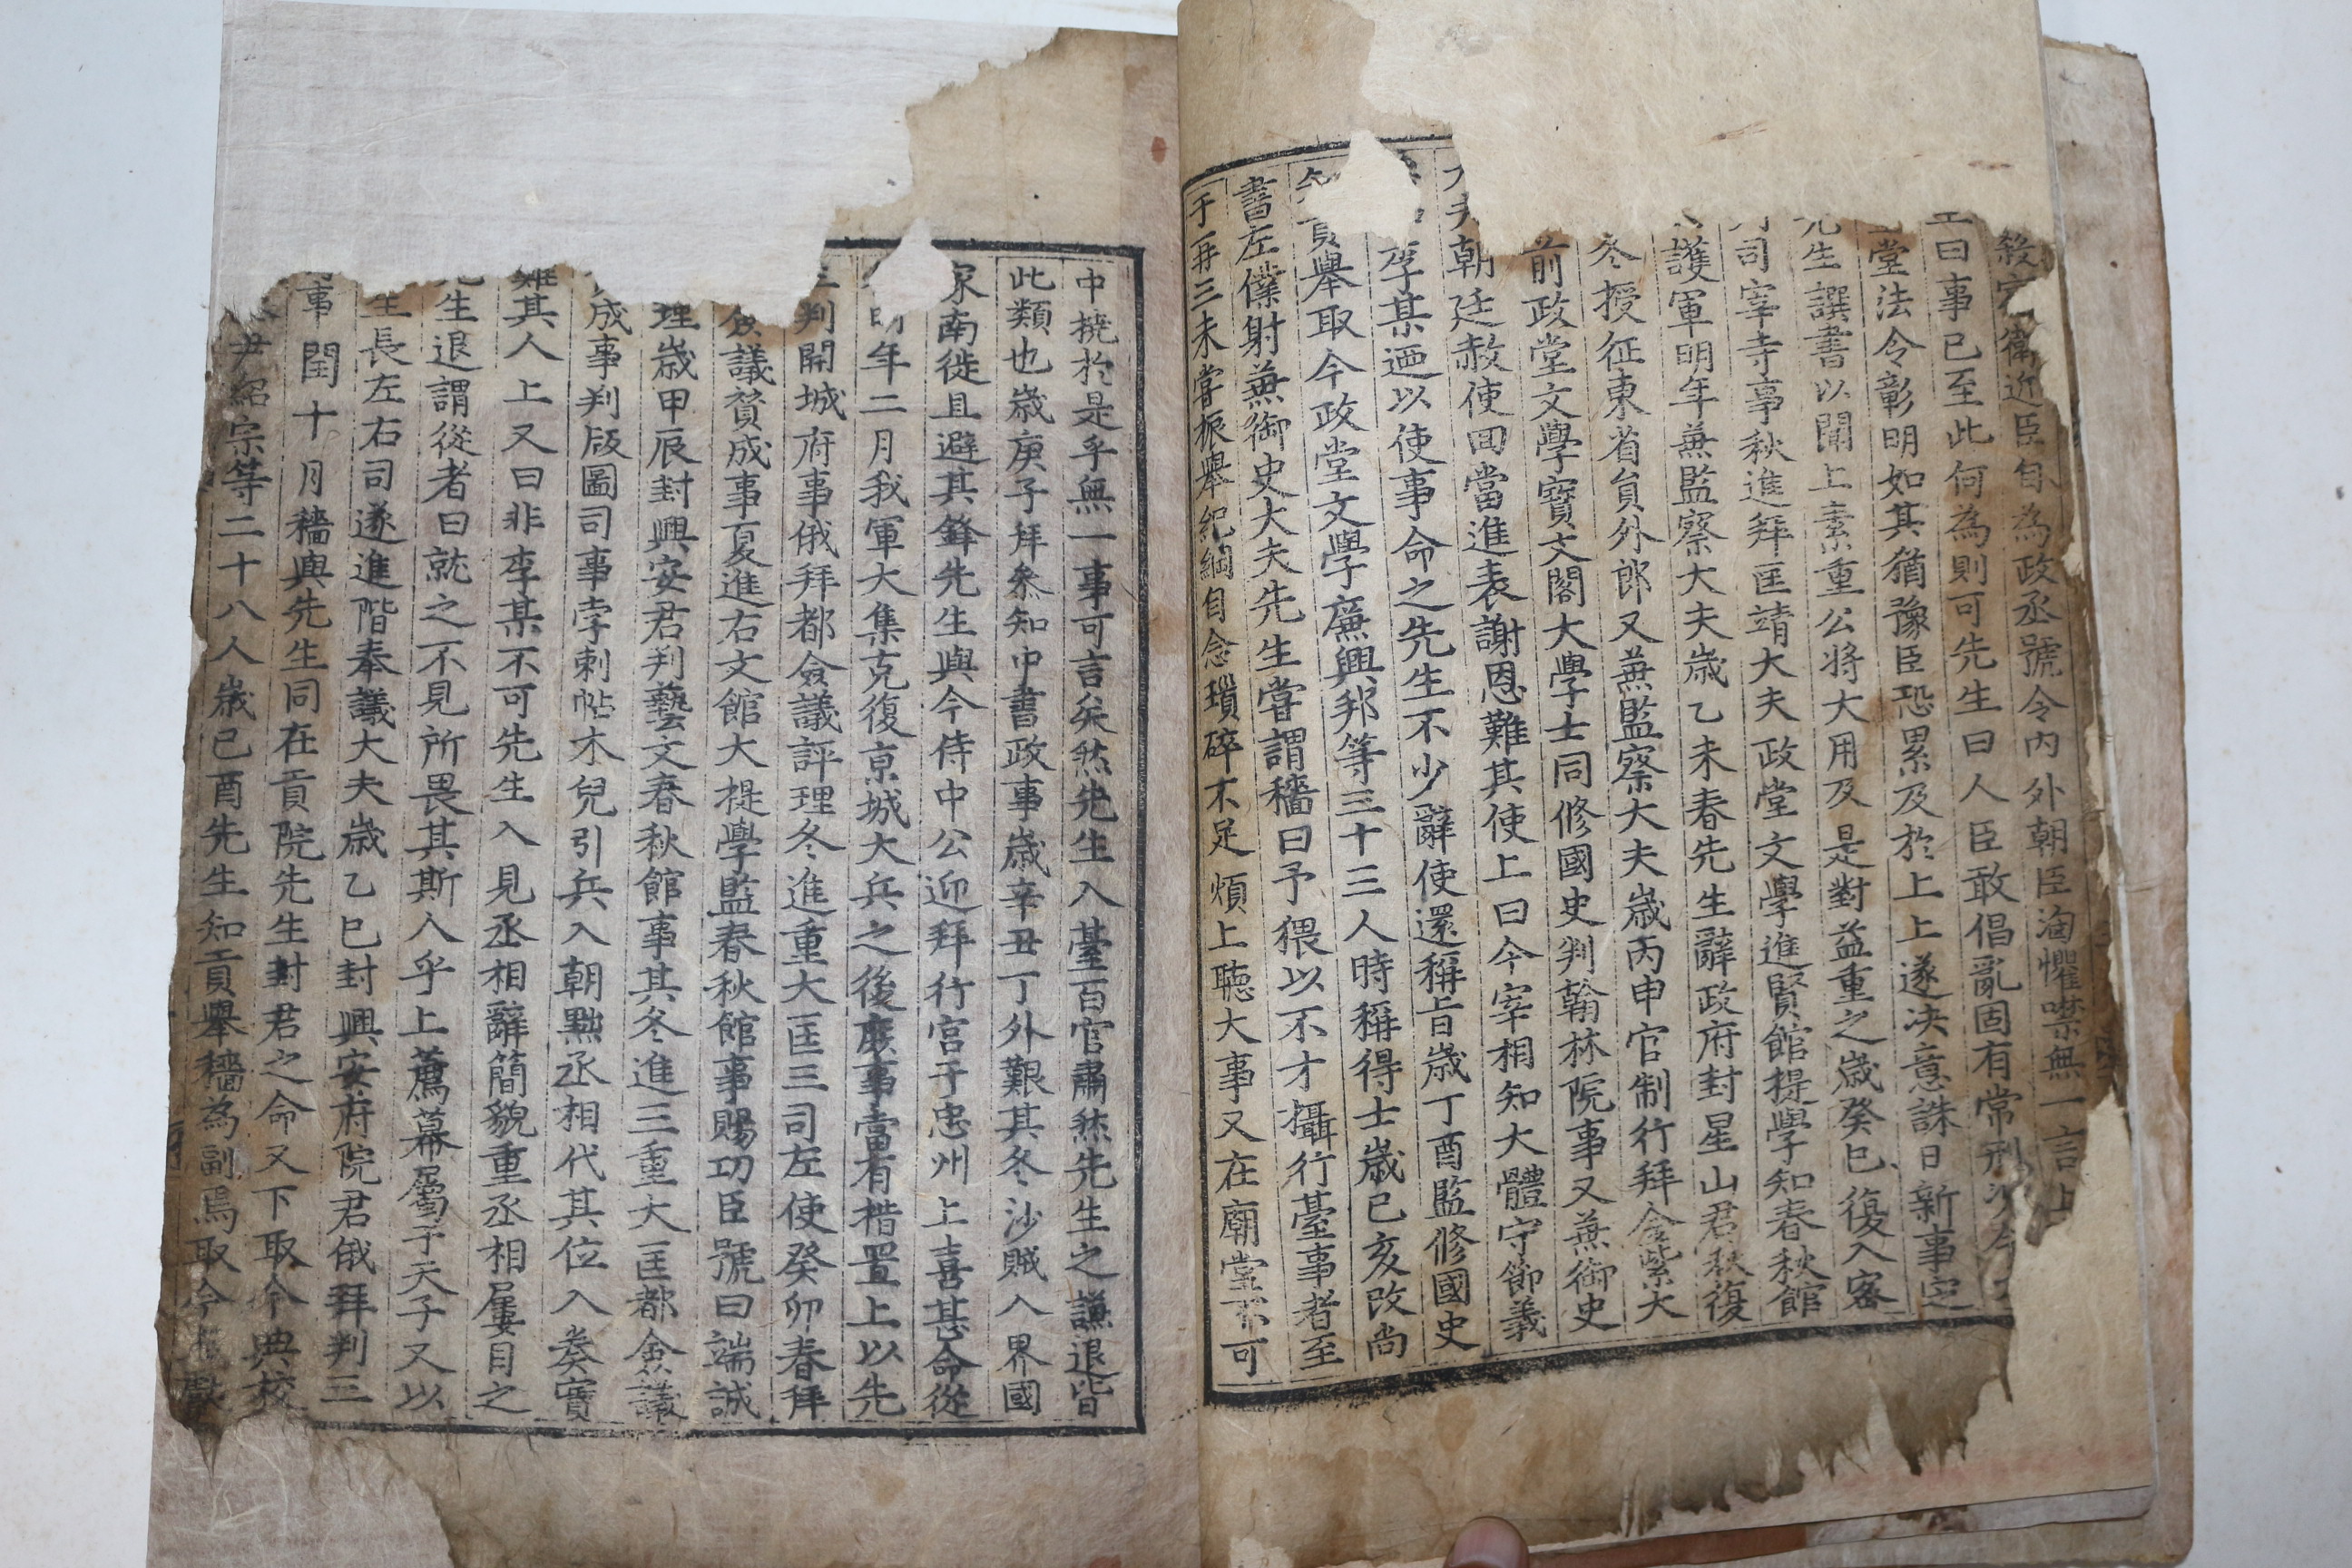 殺宿衛近臣自為政丞號令內外朝臣洶懼噤無一言上
曰事已至此何為則可先生曰人臣敢倡亂固有常刑況今
堂法令彰明如其猶豫臣恐累及於上上遂决意誅日新事定
先生譔書以聞上素重公將大用及是對益重之歲癸巳復入密
司宰寺事秋進拜匡靖大夫政堂文學進賢館提學知春秋館
護軍明年兼監察大夫歲乙未春先生辭政府封星山君秋復
冬授征東省員外郎又兼監察大夫歲丙申官制行拜金紫大
前政堂文學寶文閣大學士同修國史判翰林院事又兼御史
大夫朝廷赦使回當進表謝恩難其使上曰今宰相知大體守節義
李某迺以使事命之先生不少辭使還稱旨歲丁酉監修國史
知貢舉取今政堂文學廉興邦等三十三人時稱得士歲己亥改尚
書左僕射兼御史大夫先生嘗謂穡曰予猥以不才攝行臺事者至
于再三未嘗振舉紀綱自念瑣碎不足煩上聽大事又在廟堂不可
中撓於是乎無一事可言矣然先生入臺百官肅然先生之謙退皆
此類也歲庚子拜叅知中書政事歲辛丑丁外艱其冬沙賊入界國
家南徙且避其鋒先生與今侍中公迎拜行宮于忠州上喜甚命從
明年二月我軍大集克復京城大兵之後庶事當有措置上以先
判開城府事俄拜都僉議評理冬進重大匡三司左使癸卯春拜
僉議贊成事夏進右文館大提學監春秋館事賜功臣號曰端誠
理歲甲辰封興安君判藝文春秋館事其冬進三重大匡都僉議
成事判版圖司事孛剌帖木兒引兵入朝黜丞相代其位入奏寶
難其人上又曰非李某不可先生入見丞相辭簡貌重丞相屢目之
先生退謂從者曰就之不見所畏其斯人乎上薦幕屬于天子又以
長左右司遂進階奉議大夫歲乙巳封興安府院君俄拜判三
事閏十月穡與先生同在貢院先生封君之命又下取今典校
尹紹宗等二十八人歲己酉先生知貢舉穡為副焉取今